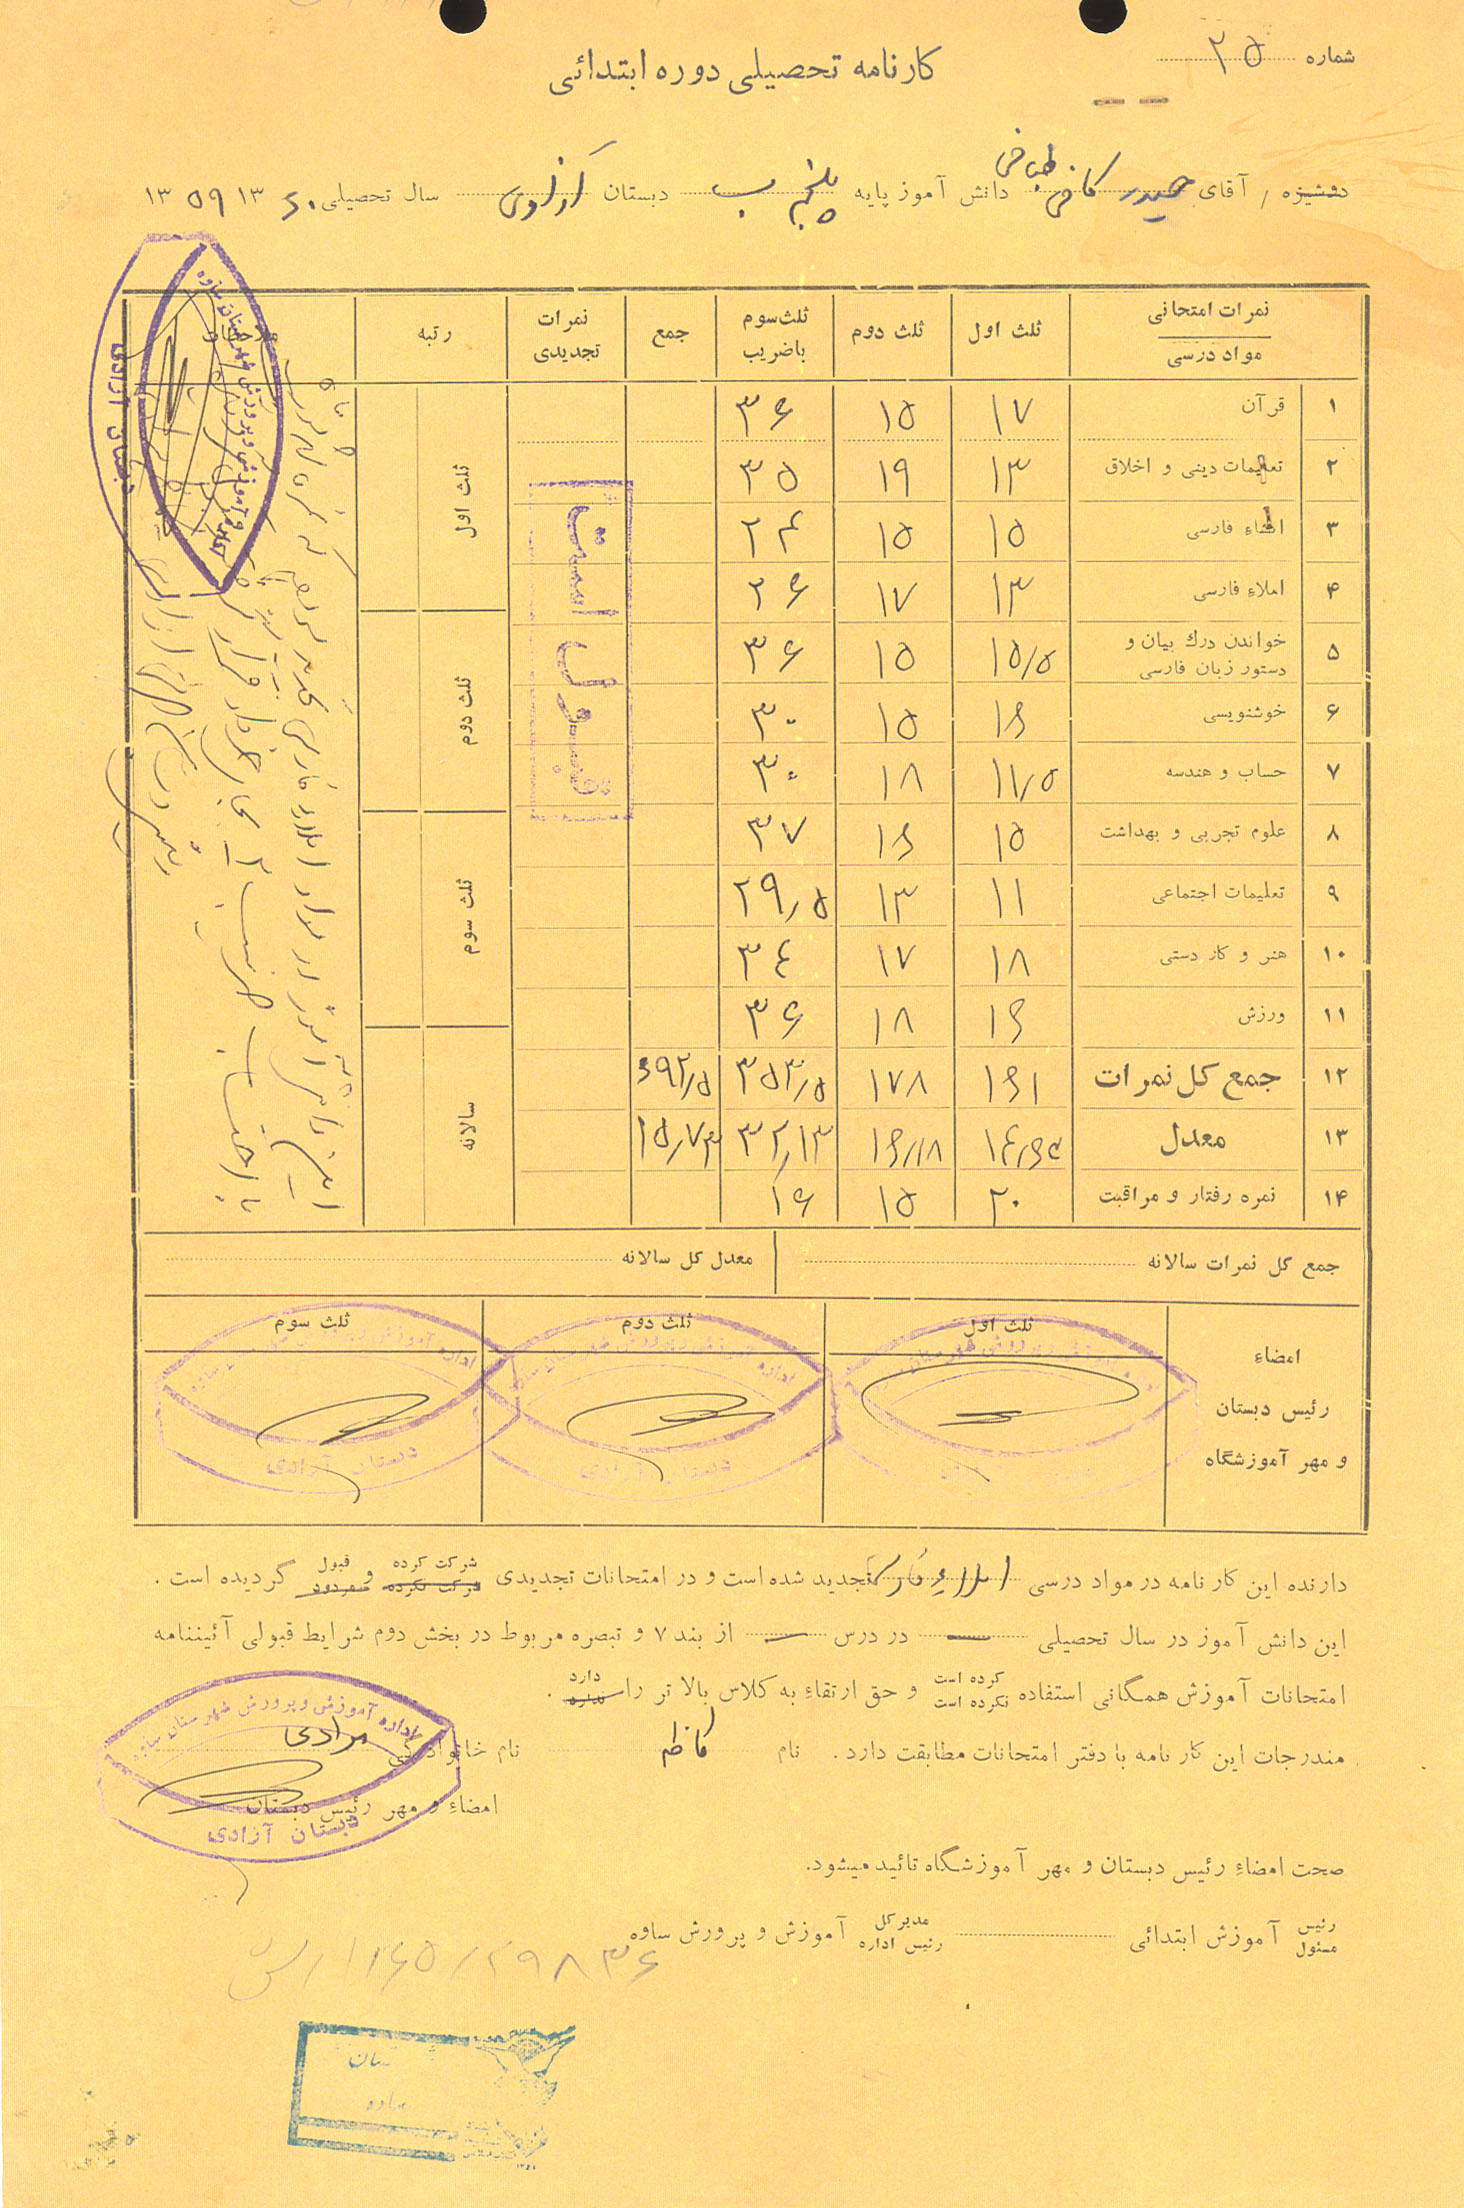 شماره ۲۵
کارنامه تحصیلی دوره ابتدائی
دوشیزه / آقای حیدر دانش آموز پایه پنجم ب دبستان آزادی سال تحصیلی ۱۳۶۰ ۱۳۵۹
نمرات امتحانی مواد درسی ثلث اول ثلث دوم ثلث سوم باضریب جمع نمرات تجدیدی رتبه
۱ قرآن ۱۷ ۱۵ ۳۶
۲ تعلیمات دینی و اخلاق ۱۳ ۱۹ ۳۵
۳ انشاء فارسی ۱۵ ۱۵ ۲۴
۴ املاء فارسی ۱۳ ۱۷ ۲۶
۵ خواندن درك بیان و دستور زبان فارسی ۱۵/۵ ۱۵ ۳۶
۶ خوشنویسی ۱۶ ۱۵ ۳۰
۷ حساب و هندسه ۱۱/۵ ۱۸ ۳۰
۸ علوم تجربی و بهداشت ۱۵ ۱۶ ۳۷
۹ تعلیمات اجتماعی ۱۱ ۱۳ ۲۹/۵
۱۰ هنر و کار دستی ۱۸ ۱۷ ۳۴
۱۱ ورزش ۱۶ ۱۸ ۳۶
۱۲ جمع کل نمرات ۱۶۱ ۱۷۸ ۳۵۳/۵ ۶۹۲/۵
۱۳ معدل ۱۶/۱۸ ۳۲/۱۳ ۱۵/۷۳
۱۴ نمره رفتار و مراقبت ۲۰ ۱۵ ۱۶
ثلث اول
ثلث دوم
ثلث سوم
سالانه
قبول است
اداره آموزش و پرورش شهرستان ساوه
دبستان آزادی
جمع کل نمرات سالانه معدل کل سالانه
امضاء رئیس دبستان و مهر آموزشگاه ثلث اول ثلث دوم ثلث سوم
اداره آموزش و پرورش شهرستان ساوه
دبستان آزادی
دبستان آزادی
دارنده این کارنامه در مواد درسی املاء فارسی تجدید شده است و در امتحانات تجدیدی شرکت کرده شرکت نکرده و قبول مردود گردیده است .
این دانش آموز در سال تحصیلی — در درس — از بند ۷ و تبصره مربوط در بخش دوم شرایط قبولی آئیننامه
امتحانات آموزش همگانی استفاده کرده است نکرده است و حق ارتقاء به کلاس بالا تر را دارد ندارد .
مندرجات این کارنامه با دفتر امتحانات مطابقت دارد . نام کاظم نام خانوادگی مرادی
امضاء و مهر رئیس دبستان
اداره آموزش و پرورش شهرستان ساوه
دبستان آزادی
صحت امضاء رئیس دبستان و مهر آموزشگاه تائید میشود.
رئیس مسئول آموزش ابتدائی مدیر کل رئیس اداره آموزش و پرورش ساوه
ساوه